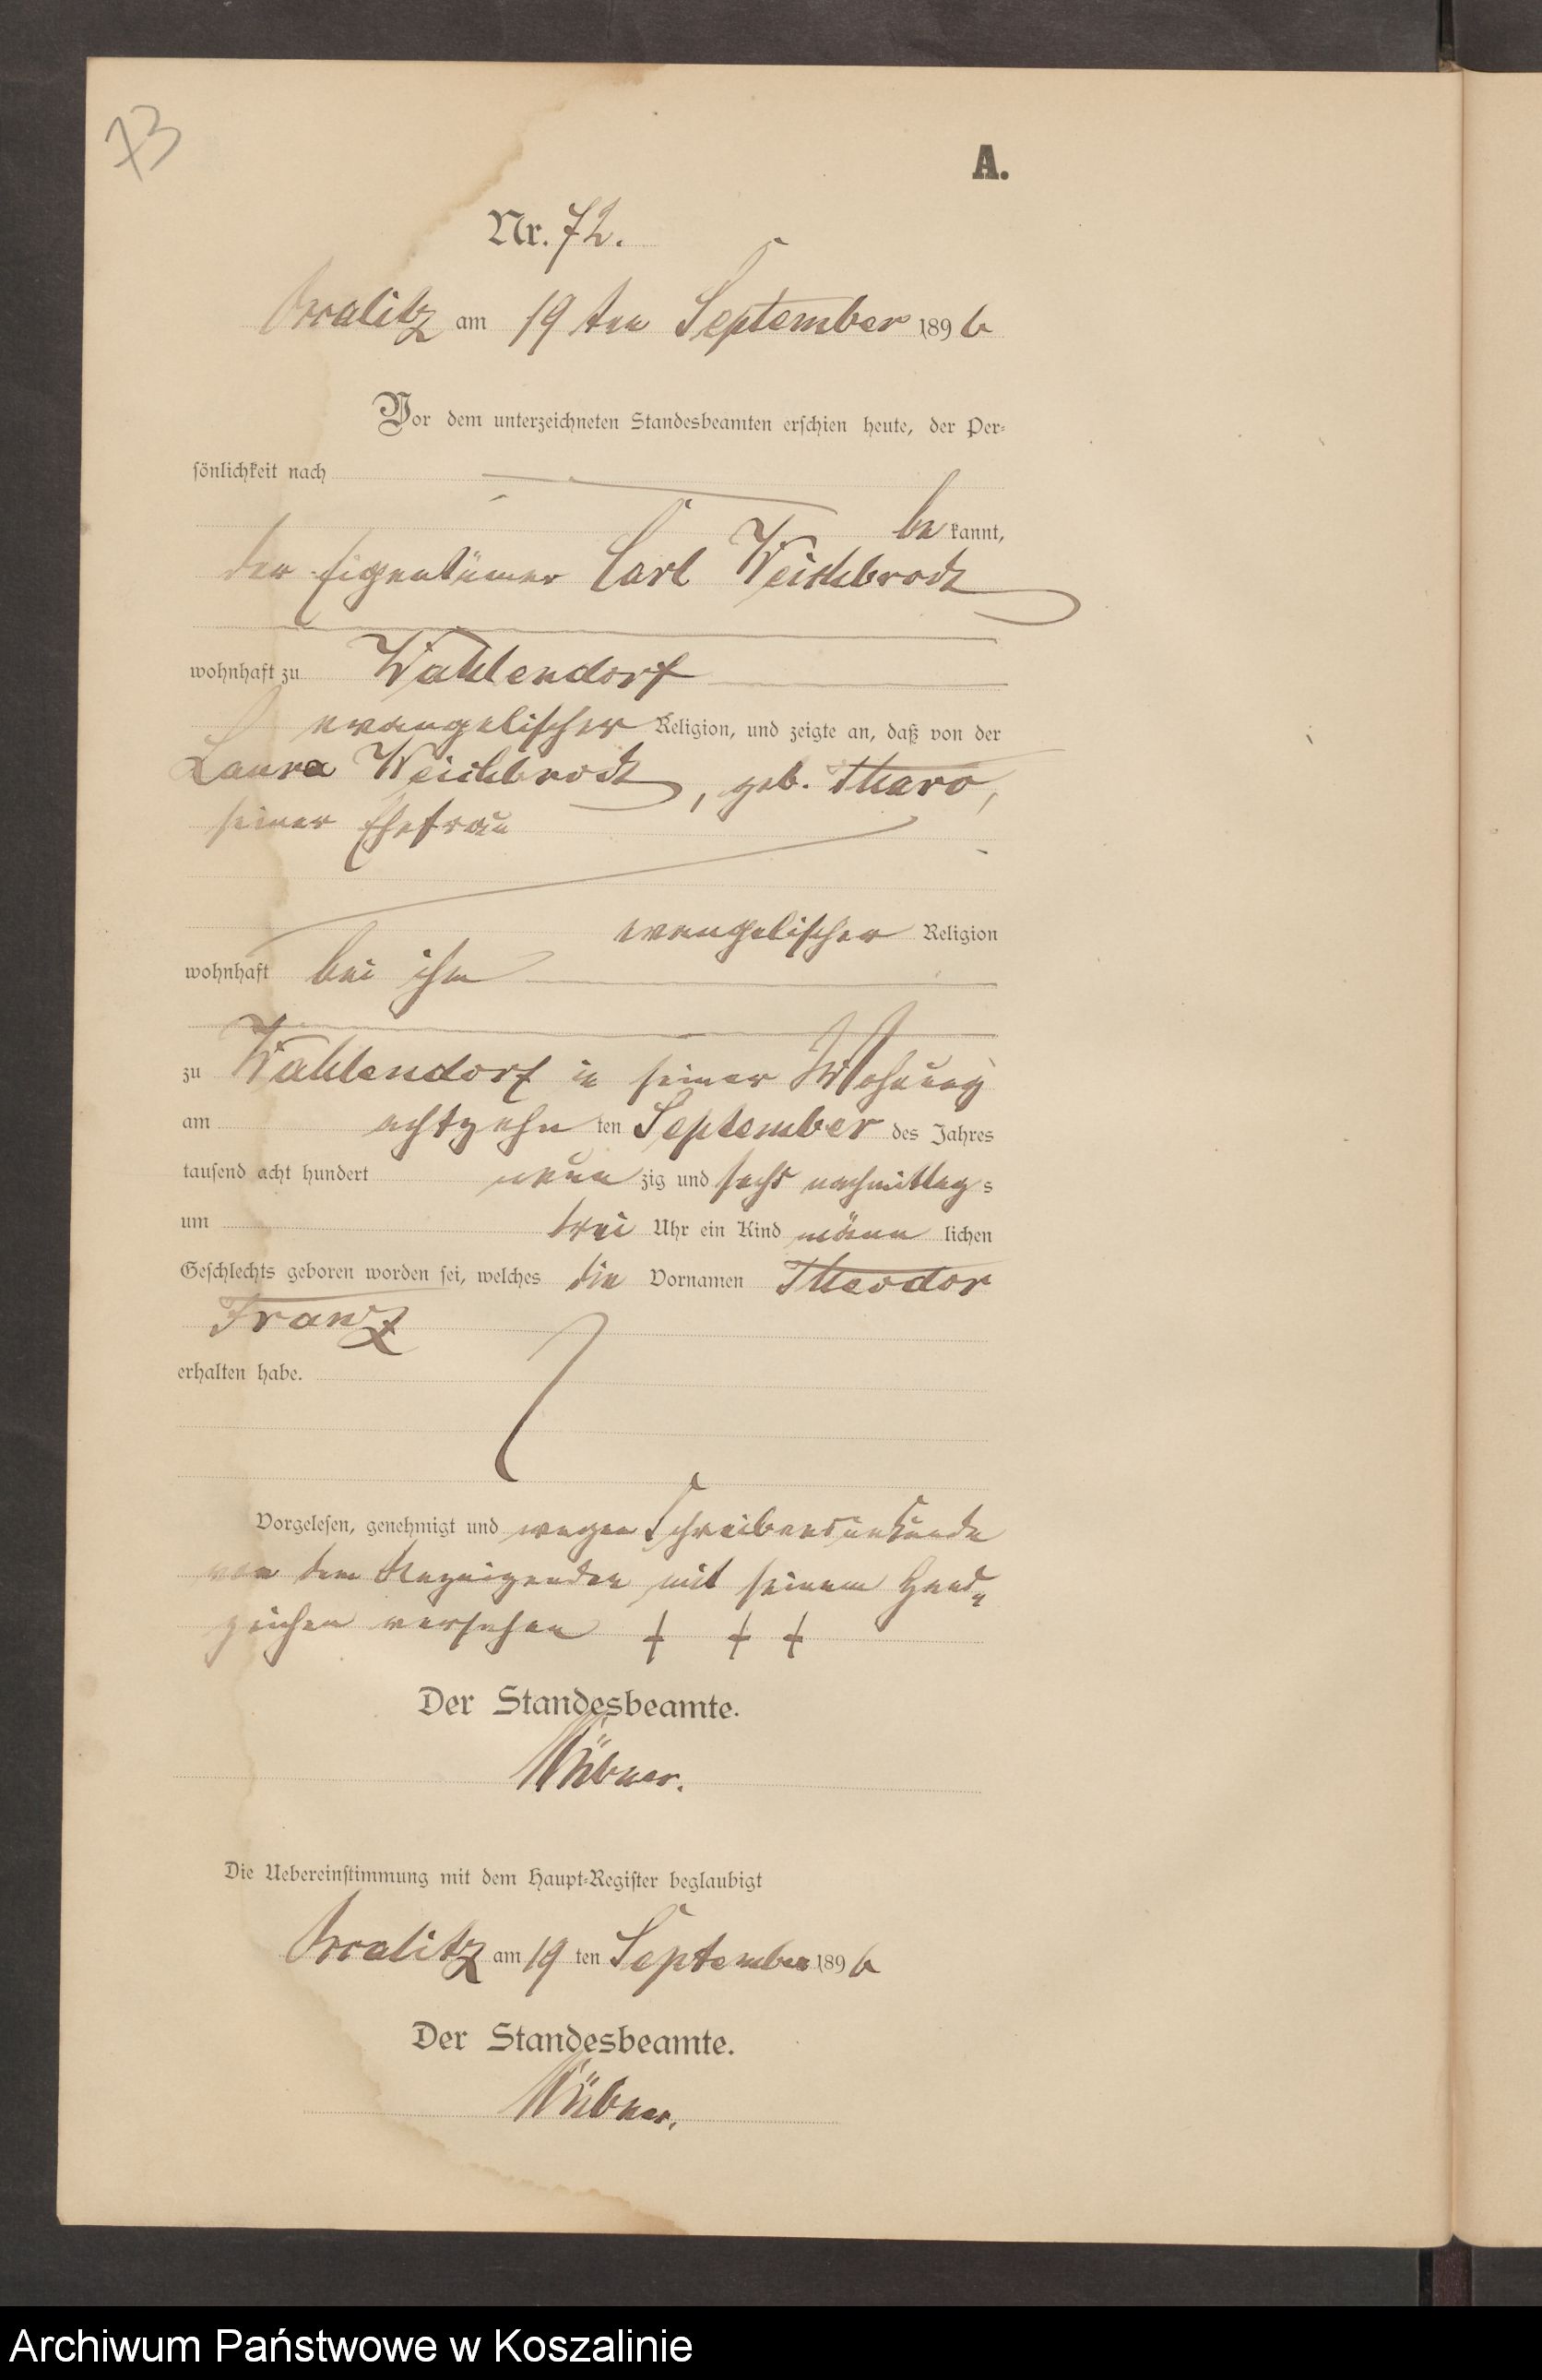 73
A.
Nr. 72.
Wralitz am 19 ten September 1896
Vor dem unterzeichneten Standesbeamten erschien heute, der Per-
sönlichkeit nach
be kannt,
der Eigentümer Carl Weichbrodt
wohnhaft zu Wahlendorf
evangelischer Religion, und zeigte an, daß von der
Laura Weichbrodt, geb. Tharo,
seiner Ehefrau
evangelischer Religion
wohnhaft bei ihm
zu Wahlendorf in seiner Wohnung
am achtzehn ten September des Jahres
tausend acht hundert neun zig und sechs nachmittags
um drei Uhr ein Kind männ lichen
Geschlechts geboren worden sei, welches die Vornamen Theodor
Franz
erhalten habe.
Vorgelesen, genehmigt und wegen Schreibensunkunde
von dem Anzeigenden mit seinem Hand-
zeichen versehen + + +
Der Standesbeamte.
Die Uebereinstimmung mit dem Haupt-Register beglaubigt
Wralitz am 19 ten September 1896
Der Standesbeamte.
Archiwum Państwowe w Koszalinie